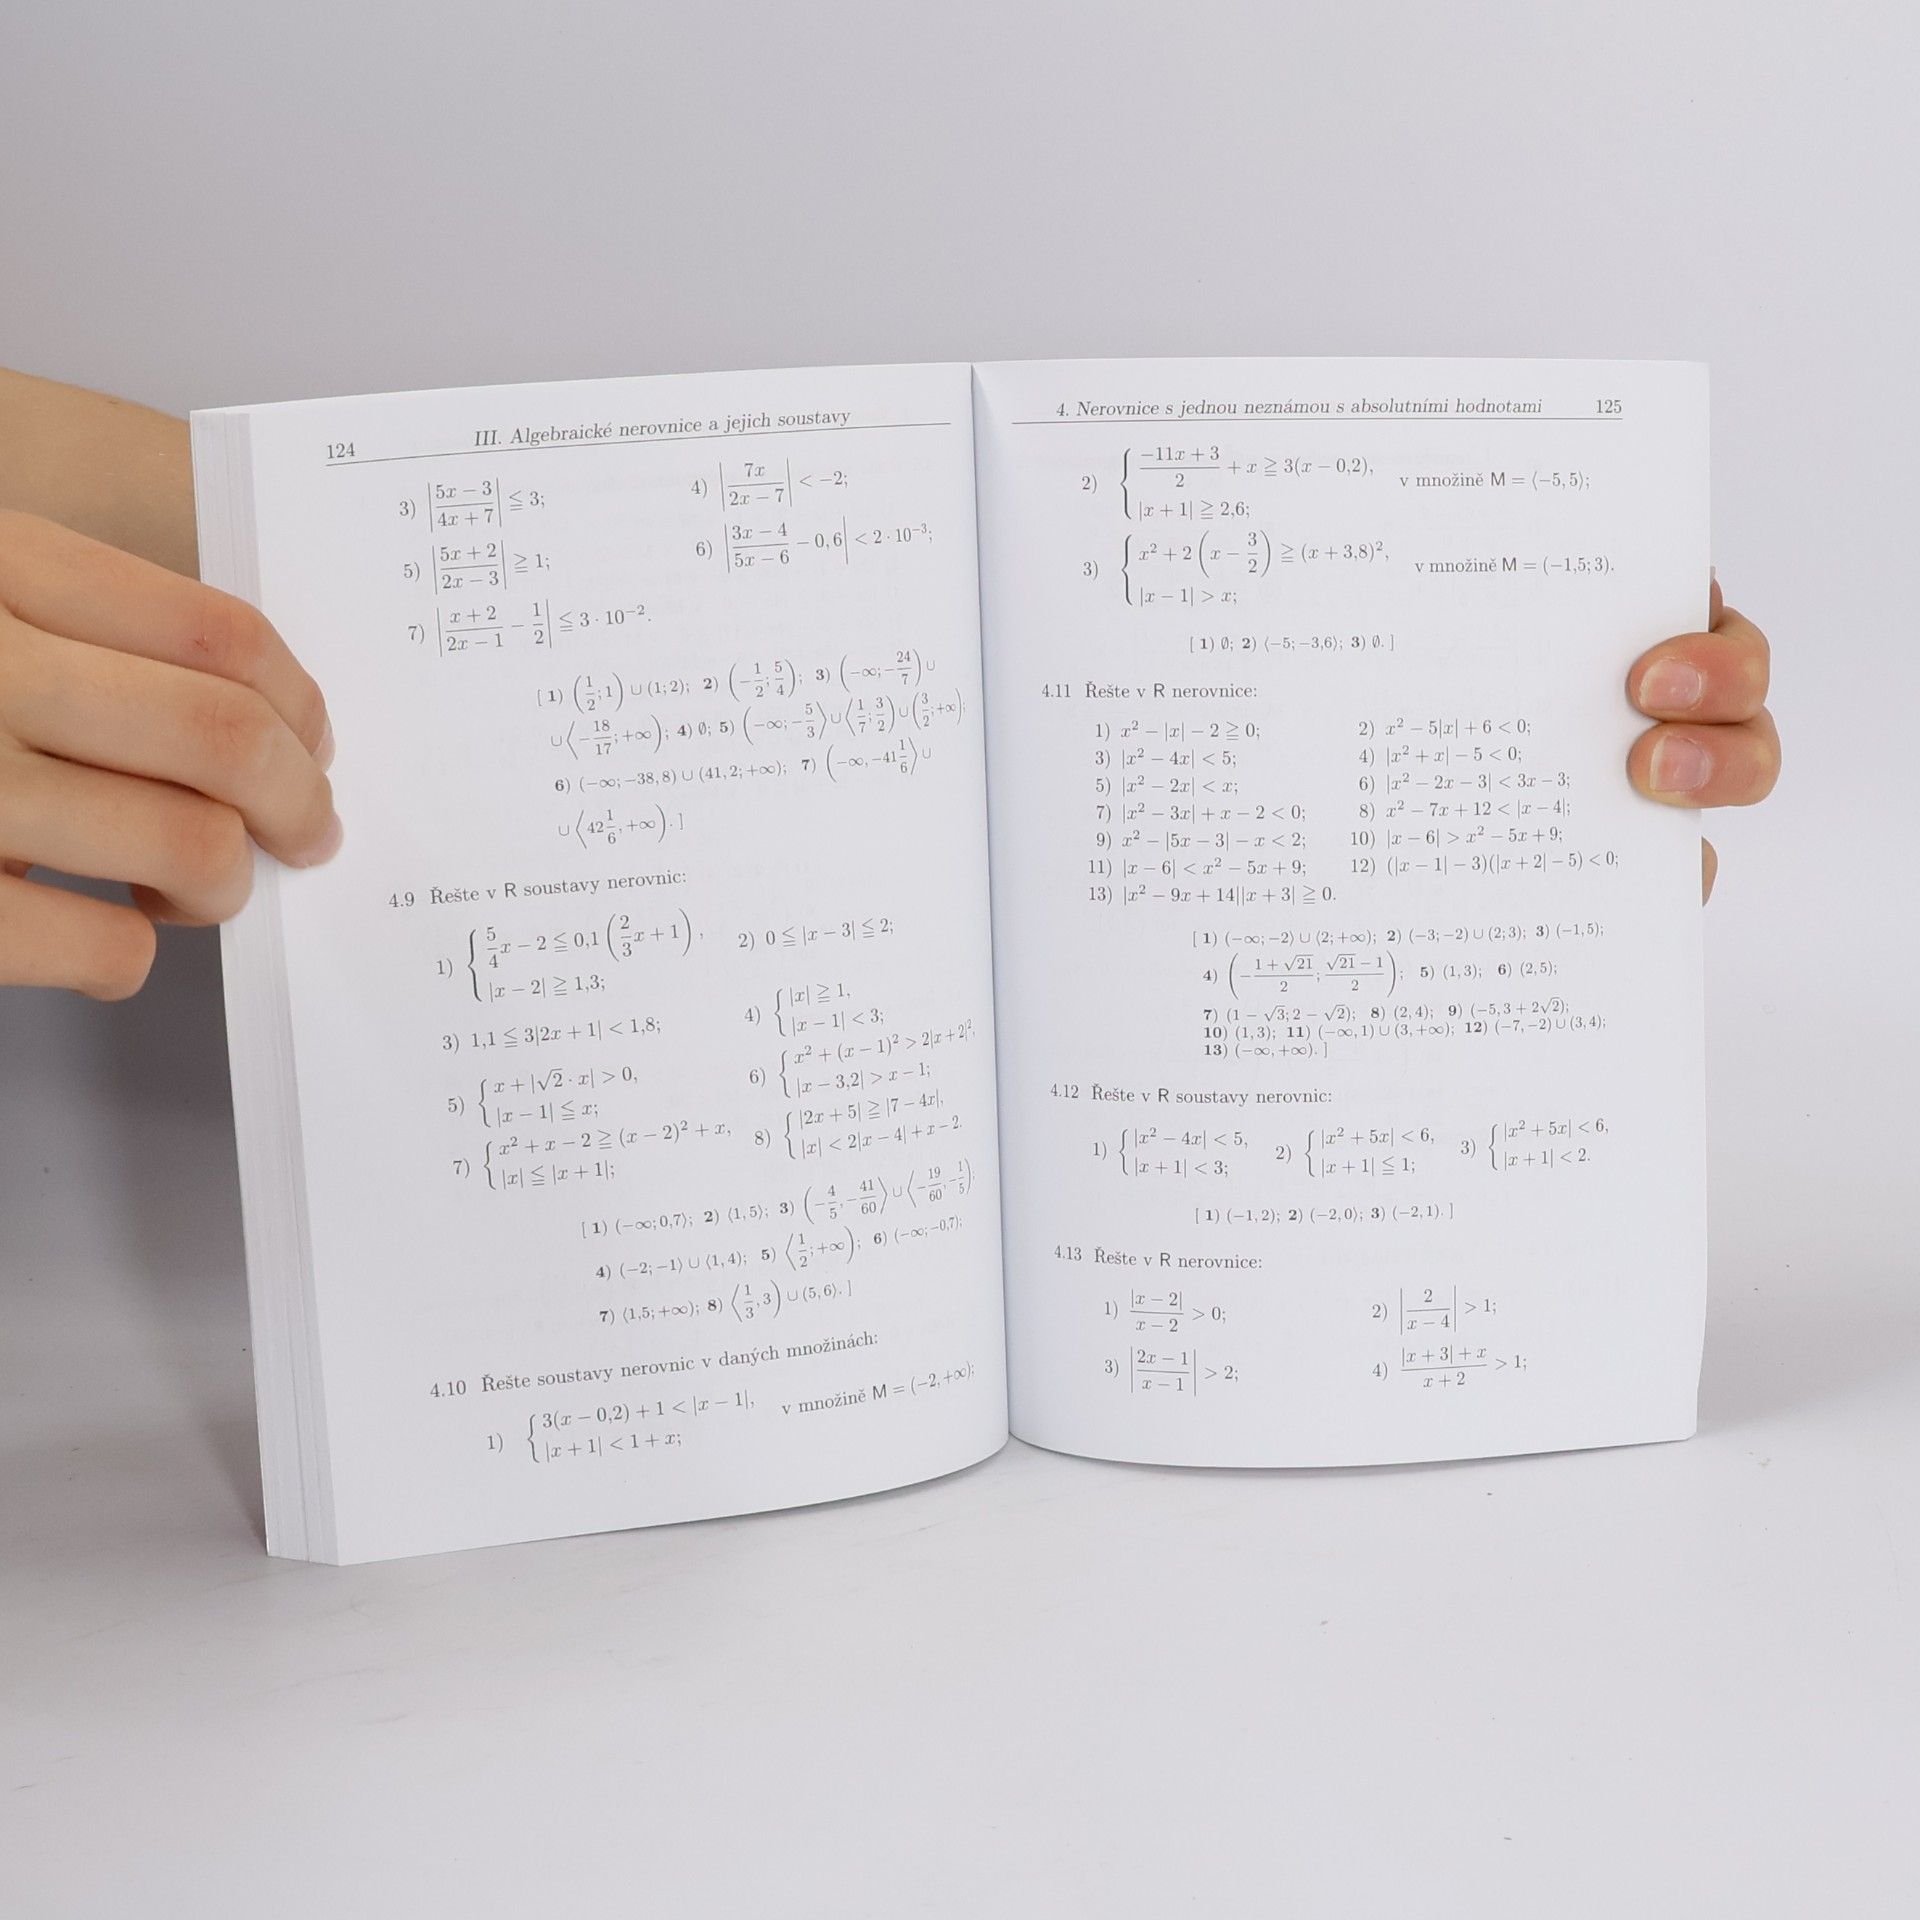 124 III. Algebraické nerovnice a jejich soustavy
3) |(5x − 3)/(4x + 7)| ≦ 3; 4) |7x/(2x − 7)| < −2;
5) |(5x + 2)/(2x − 3)| ≧ 1; 6) |(3x − 4)/(5x − 6) − 0,6| < 2 · 10⁻³;
7) |(x + 2)/(2x − 1) − 1/2| ≦ 3 · 10⁻².
[ 1) (1/2; 1) ∪ (1; 2); 2) (−1/2; 5/4); 3) (−∞; −24/7) ∪
∪ ⟨−18/17; +∞); 4) ∅; 5) (−∞; −5/3⟩ ∪ ⟨1/7; 3/2) ∪ (3/2; +∞);
6) (−∞; −38,8) ∪ (41,2; +∞); 7) (−∞, −41 1/6⟩ ∪
∪ ⟨42 1/6, +∞). ]
4.9 Řešte v R soustavy nerovnic:
1) { 5/4 x − 2 ≦ 0,1 (2/3 x + 1), 2) 0 ≦ |x − 3| ≦ 2;
|x − 2| ≧ 1,3;
3) 1,1 ≦ 3|2x + 1| < 1,8; 4) { |x| ≧ 1,
|x − 1| < 3;
5) { x + |√2 · x| > 0, 6) { x² + (x − 1)² > 2|x + 2|²,
|x − 1| ≦ x; |x − 3,2| > x − 1;
7) { x² + x − 2 ≧ (x − 2)² + x, 8) { |2x + 5| ≧ |7 − 4x|,
|x| ≦ |x + 1|; |x| < 2|x − 4| + x − 2.
[ 1) (−∞; 0,7⟩; 2) ⟨1, 5⟩; 3) (−4/5, −41/60⟩ ∪ ⟨−19/60, −1/5);
4) (−2; −1⟩ ∪ ⟨1, 4); 5) ⟨1/2; +∞); 6) (−∞; −0,7);
7) ⟨1,5; +∞); 8) ⟨1/3, 3) ∪ (5, 6⟩. ]
4.10 Řešte soustavy nerovnic v daných množinách:
1) { 3(x − 0,2) + 1 < |x − 1|, v množině M = (−2, +∞);
|x + 1| < 1 + x;
4. Nerovnice s jednou neznámou s absolutními hodnotami 125
2) { (−11x + 3)/2 + x ≧ 3(x − 0,2), v množině M = ⟨−5, 5⟩;
|x + 1| ≧ 2,6;
3) { x² + 2 (x − 3/2) ≧ (x + 3,8)², v množině M = (−1,5; 3).
|x − 1| > x;
[ 1) ∅; 2) ⟨−5; −3,6⟩; 3) ∅. ]
4.11 Řešte v R nerovnice:
1) x² − |x| − 2 ≧ 0; 2) x² − 5|x| + 6 < 0;
3) |x² − 4x| < 5; 4) |x² + x| − 5 < 0;
5) |x² − 2x| < x; 6) |x² − 2x − 3| < 3x − 3;
7) |x² − 3x| + x − 2 < 0; 8) x² − 7x + 12 < |x − 4|;
9) x² − |5x − 3| − x < 2; 10) |x − 6| > x² − 5x + 9;
11) |x − 6| < x² − 5x + 9; 12) (|x − 1| − 3)(|x + 2| − 5) < 0;
13) |x² − 9x + 14||x + 3| ≧ 0.
[ 1) (−∞; −2⟩ ∪ ⟨2; +∞); 2) (−3; −2) ∪ (2; 3); 3) (−1, 5);
4) (−(1 + √21)/2; (√21 − 1)/2); 5) (1, 3); 6) (2, 5);
7) (1 − √3; 2 − √2); 8) (2, 4); 9) (−5, 3 + 2√2);
10) (1, 3); 11) (−∞, 1) ∪ (3, +∞); 12) (−7, −2) ∪ (3, 4);
13) (−∞, +∞). ]
4.12 Řešte v R soustavy nerovnic:
1) { |x² − 4x| < 5, 2) { |x² + 5x| < 6, 3) { |x² + 5x| < 6,
|x + 1| < 3; |x + 1| ≦ 1; |x + 1| < 2.
[ 1) (−1, 2); 2) (−2, 0⟩; 3) (−2, 1). ]
4.13 Řešte v R nerovnice:
1) |x − 2|/(x − 2) > 0; 2) |2/(x − 4)| > 1;
3) |(2x − 1)/(x − 1)| > 2; 4) (|x + 3| + x)/(x + 2) > 1;